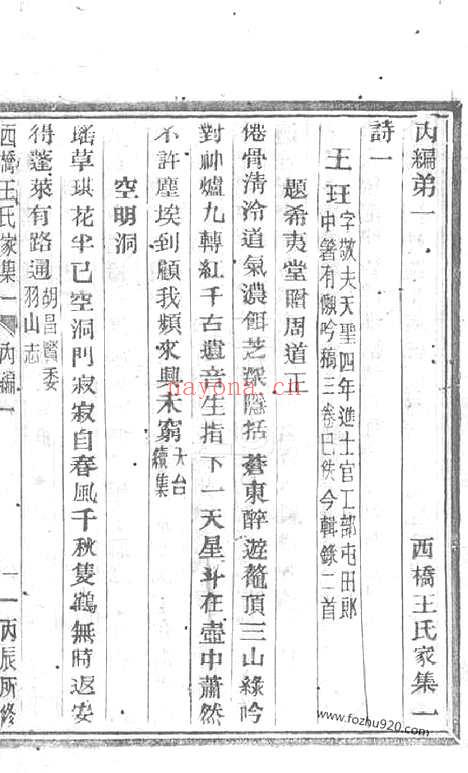 丙編弟一　西橋王氏家集一
詩一
王珏字敬夫天聖四年進士官工部屯田郎中箸有懶吟稿三卷已佚今輯錄二首
題希夷堂贈周道正
倦骨清泠道氣濃餌芝深隱括蒼東醉遊鼇頂三山綠吟
對神爐九轉紅千古遺音生指下一天星斗在壺中蕭然
不許塵埃到顧我頻來興未窮天台續集
空明洞
瑤草琪花半已空洞門寂寂自春風千秋隻鶴無時返安
得蓬萊有路通胡昌賢委羽山志
西橋王氏家集一　丙編一　一　丙辰所修
nayona.cn
www.fozhu920.com